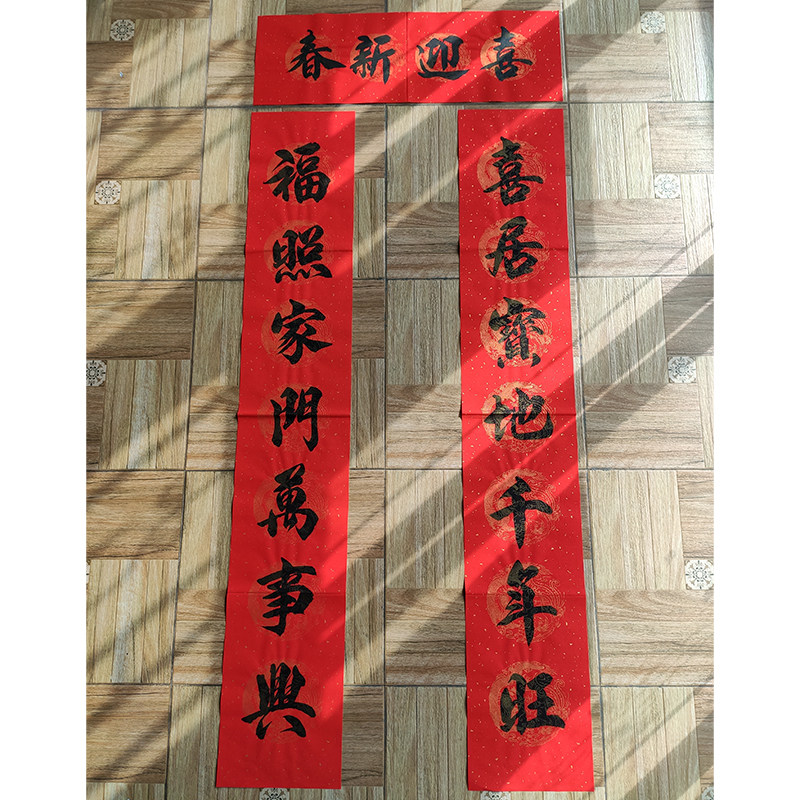 喜迎新春
喜居寳地千年旺
福照家門萬事興